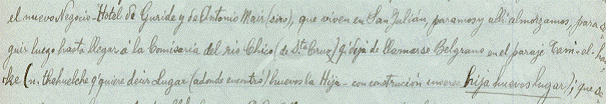 el nuevo Negocio-Hotel de Guride y de Antonio Mais (ciro), que viven en San Julián, paramos y allí almorzamos, para se-
guir luego hasta llegar á la Comisaria del rio Chico (de Sta Cruz) q. dejó de llamarse Belgrano en el paraje Tam-el-
ke (n. thehuelche q' quiere decir Lugar (adonde encontró) huevos la Hija - con construcción inversa hija huevos lugar); que